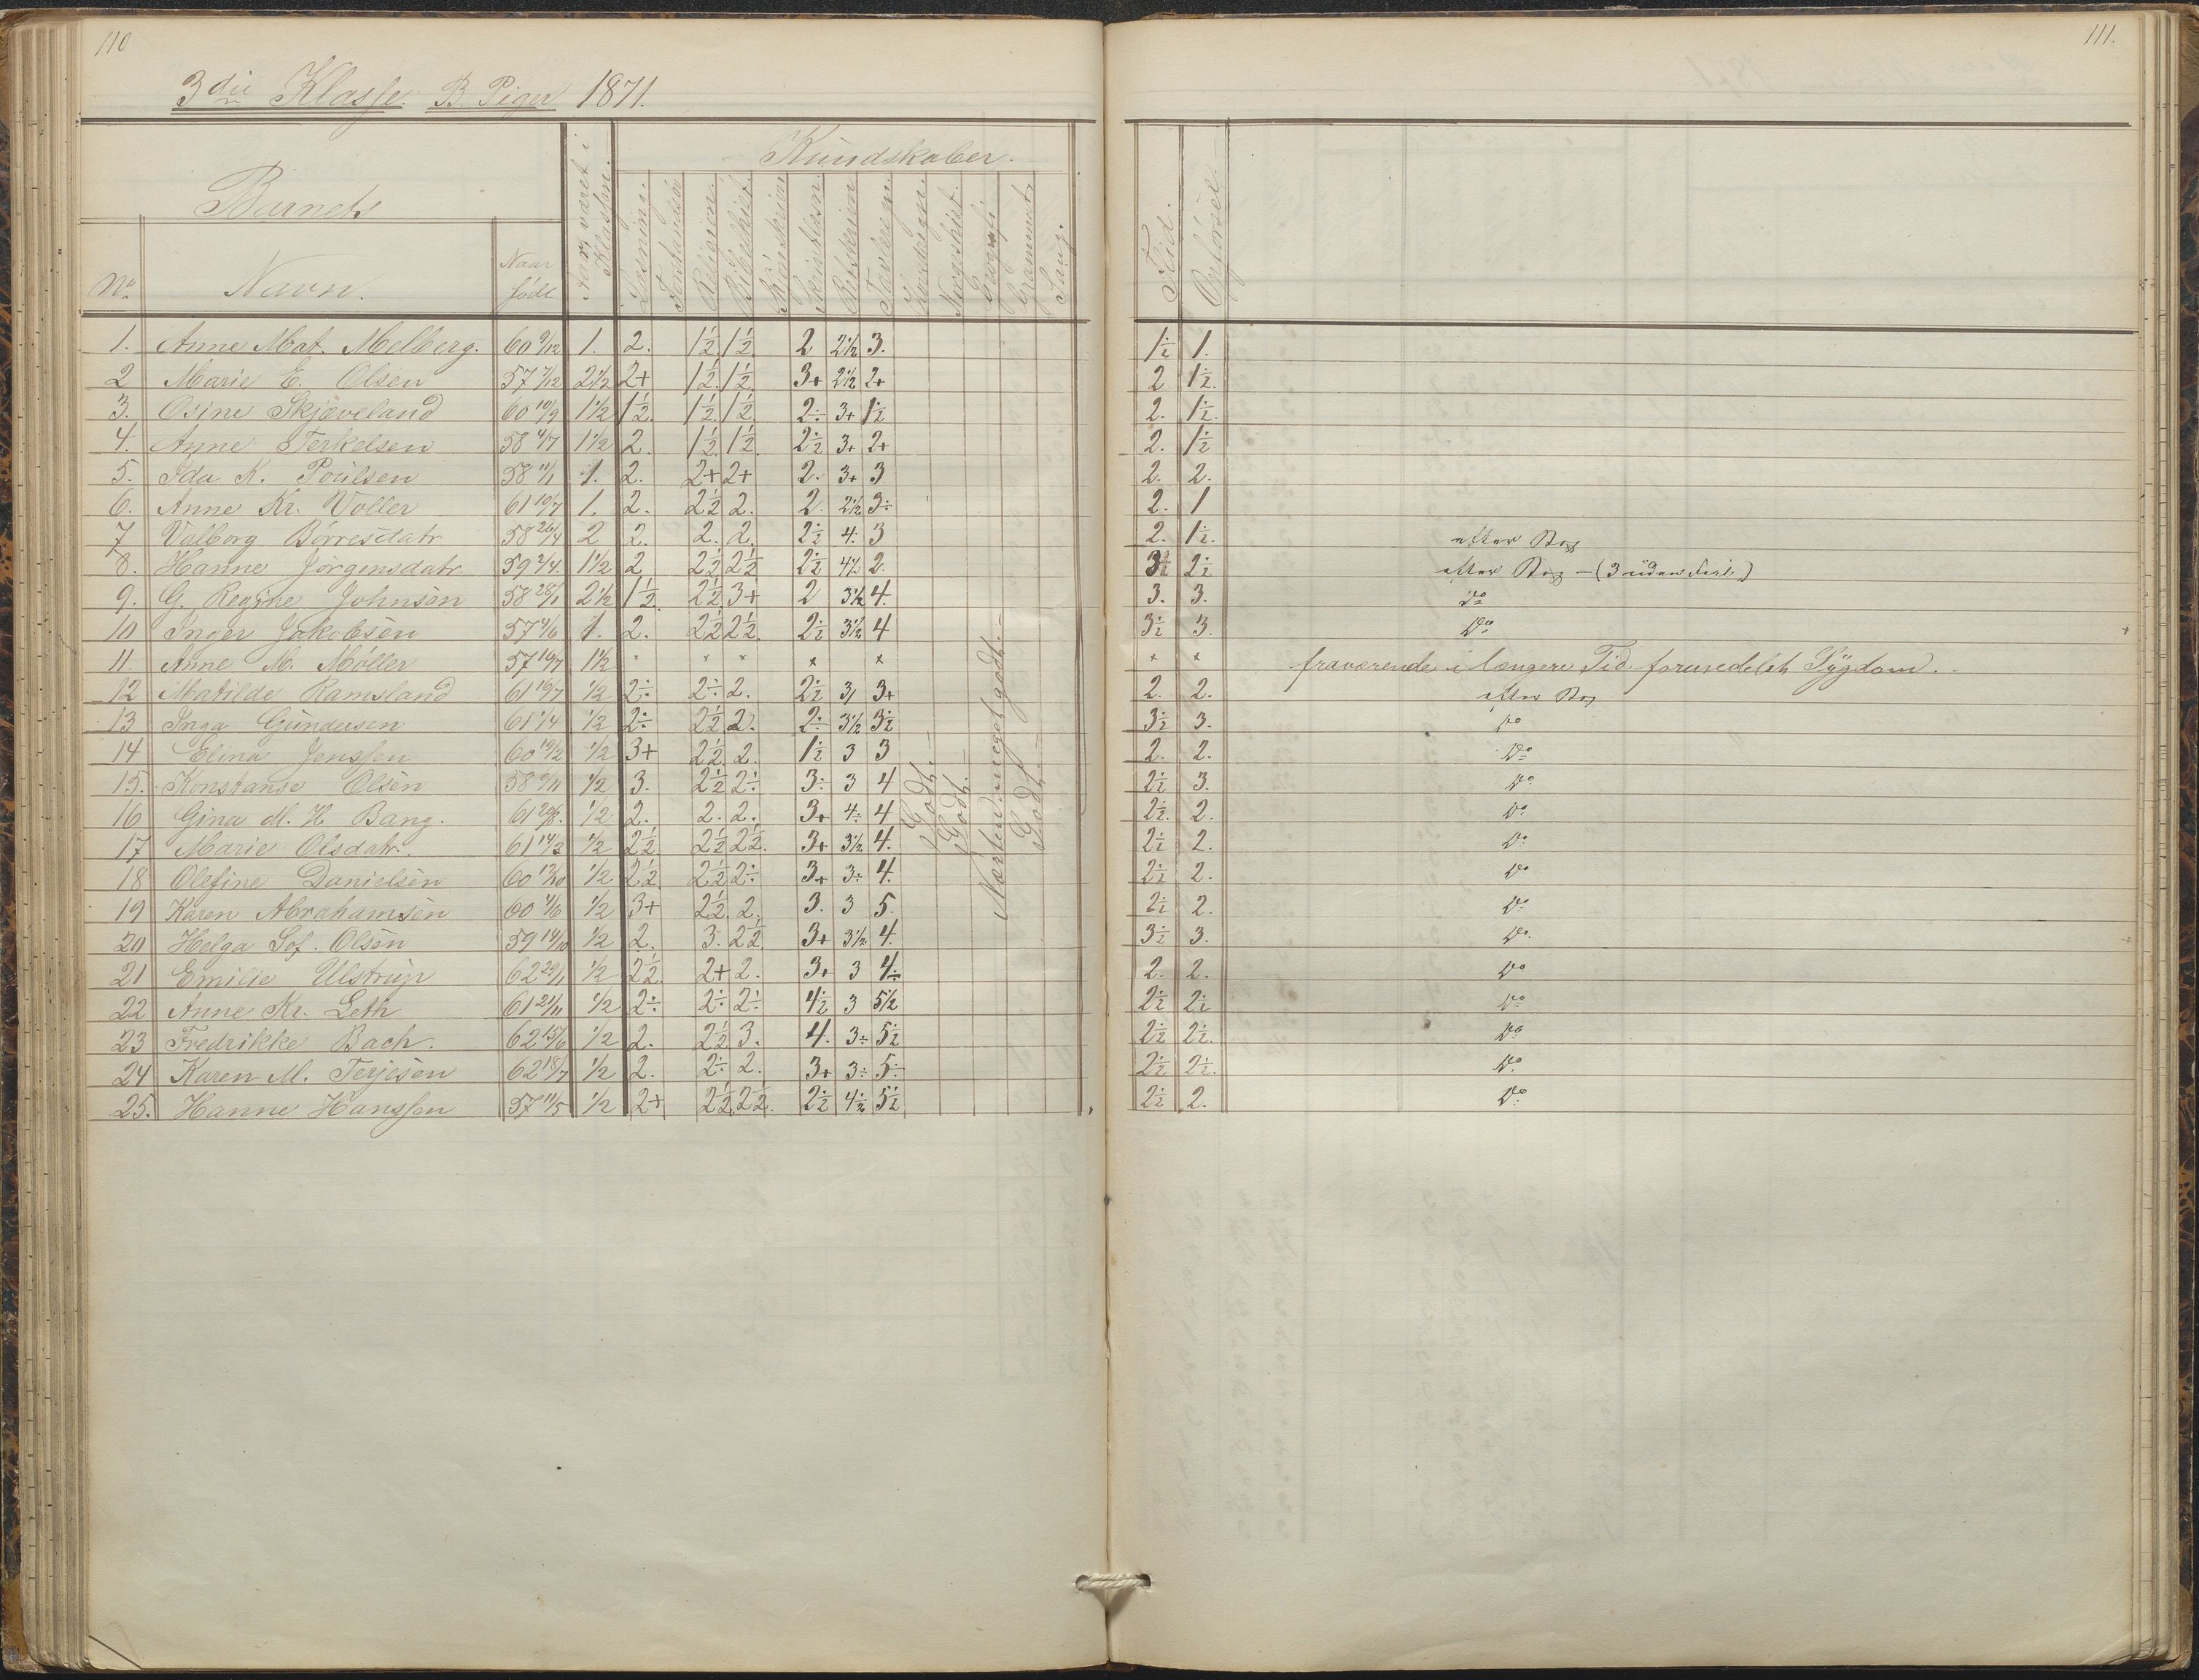 110
111.
3die Klasse. B. Piger 1871.
Barnets
No Navn. Naar født
Aar været i Klassen.
Kundskaber.
Læsning. Forstandsø Religion. Bibelhist. Skjønskrivn Skriftlæsn. Retskrivn Tavleregn. Hovedregn. Norgeshist. Geografi. Grammat. Sang.
Flid. Opførsel.
1. Anne Mat. Melberg. 60 9/12 1. 2. 1½ 1½ 2 2½ 3. 1½ 1.
2 Marie E. Olsen 57 7/12 2½ 2+ 1½ 1½ 3+ 2½ 2+ 2 1½.
3. Osine Skjæveland 60 10/9 1½ 1½ 1½ 1½ 2÷ 3+ 1½ 2. 1½.
4. Anne Terkelsen 58 4/7 1½ 2. 1½ 1½ 2½ 3+ 2+ 2. 1½
5. Ida K. Poülsen 58 11/1 1. 2. 2+ 2+ 2. 3+ 3 2. 2.
6. Anne Kr. Voller 61 10/7 1. 2. 2½ 2. 2. 2½ 3÷ 2. 1
7 Valborg Börresdatr 58 26/4 2 2. 2. 2. 2½ 4. 3 2. 1½. efter Bog
8. Hanne Jörgensdatr. 59 2/4. 1½ 2 2½ 2½ 2½ 4½ 2. 3½ 2½ efter Bog - (3 uden Feil)
9. G. Regine Johnsen 58 28/1 2½ 1½ 2½ 3+ 2 3½ 4. 3. 3. Do
10 Inger Jakobsen 57 4/6 1. 2. 2½ 2½. 2½ 3½ 4 3½ 3. Do
11. Anne M. Möller 57 16/7 1½ × × × × × × × fraværende i længere Tid formedelst Sygdom.
12 Matilde Ramsland 61 16/7 ½ 2÷ 2÷ 2. 2½ 3/ 3+ 2. 2. efter Bog
13 Inga Gündersen 61 1/4 ½ 2÷ 2½ 2. 2÷ 3½ 3½ 3½ 3. Do
14 Elina Jenssen 60 19/2 ½ 3+ 2½ 2. 1½ 3 3 2. 2. Do
15. Konstanse Olsen 58 9/11 ½ 3. 2½ 2÷ 3÷ 3 4 2½ 3. Do
16 Gina M. H. Bang. 61 29/8. ½ 2. 2. 2. 3+ 4÷ 4 2½. 2. Do
17 Marie Olsdatr. 61 14/3 ½ 2½ 2½ 2½. 3+ 3½ 4. 2½ 2. Do
18 Olefine Danielsen 60 13/10 ½ 2½ 2½ 2÷ 3+ 3÷ 4. 2½ 2. Do
19 Karen Abrahamsen 60 4/6 ½ 3+ 2½ 2. 3. 3 5. 2½ 2. Do
20 Helga Sof. Olsen 59 14/10 ½ 2. 3. 2½ 3+ 3½ 4. 3½ 3. Do
21 Emilie Ulstrüp 62 29/1 ½ 2½ 2+ 2. 3+ 3 4÷ 2. 2. Do
22 Anne Kr. Leth 61 21/11 ½ 2÷ 2÷ 2÷ 4½ 3 5½ 2½ 2½ Do
23 Fredrikke Bach. 62 15/6 ½ 2. 2½ 3. 4. 3÷ 5½ 2½ 2½. Do
24 Karen M. Terjesen 62 18/7 ½ 2. 2÷ 2. 3+ 3÷ 5÷ 2½ 2½. Do
25. Hanne Hanssen 57 11/5 ½ 2+ 2½ 2½. 2½ 4½ 5½ 2½ 2. Do
Godt.
Godt.
Næsten meget godt.
Godt.